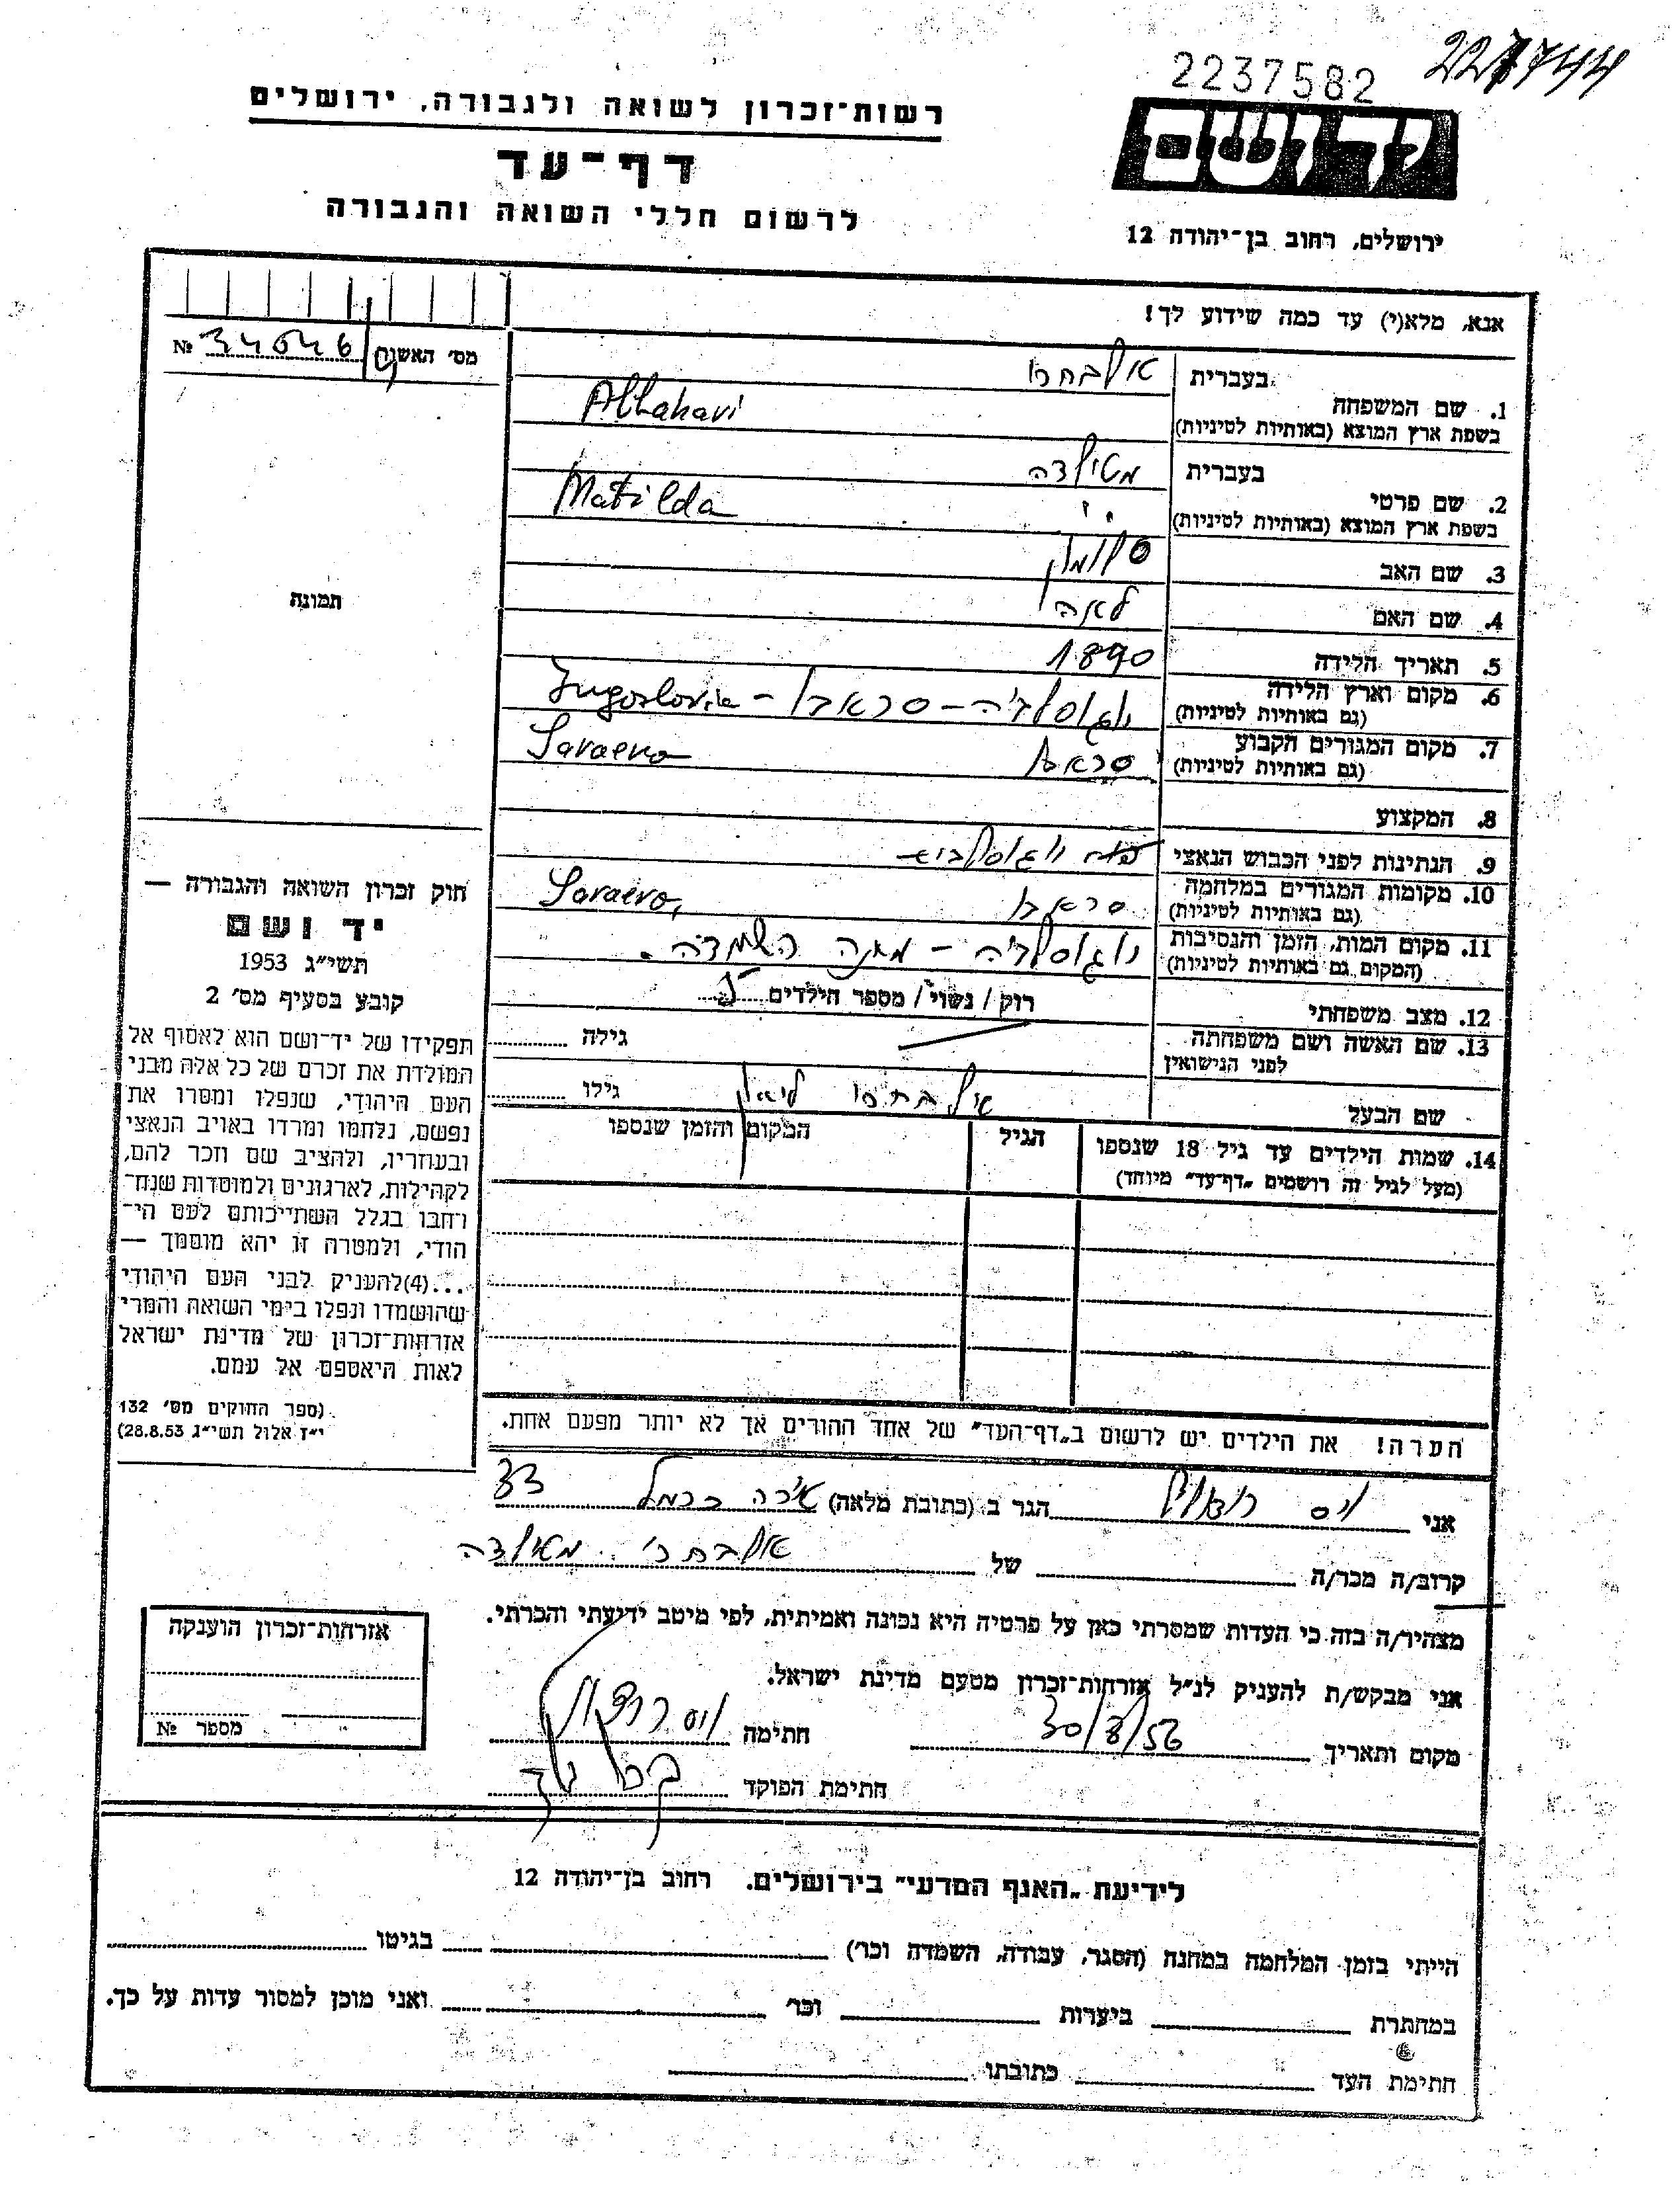 2237582
227744
רשות־זכרון לשואה ולגבורה, ירושלים
דף־עד
לרשום חללי השואה והגבורה
יד ושם
ירושלים, רחוב בן־יהודה 12
אנא, מלא(י) עד כמה שידוע לך!
מס׳ האשנה № 34646
1. שם המשפחה בעברית אלבחרי
בשפת ארץ המוצא (באותיות לטיניות) Albahari
2. שם פרטי בעברית מטילדה
בשפת ארץ המוצא (באותיות לטיניות) Matilda
3. שם האב סולומון
4. שם האם לאה
5. תאריך הלידה 1890
6. מקום וארץ הלידה
(גם באותיות לטיניות) יוגוסלביה – סראבו – Jugoslovia
7. מקום המגורים הקבוע
(גם באותיות לטיניות) סראבו Saraevo
8. המקצוע
9. הנתינות לפני הכבוש הנאצי
10. מקומות המגורים במלחמה
(גם באותיות לטיניות) סראבו Saraevo,
11. מקום המות, הזמן והנסיבות
(המקום גם באותיות לטיניות) יוגוסלביה – מחנה השמדה.
12. מצב משפחתי רוק / נשוי / מספר הילדים
13. שם האשה ושם משפחתה
לפני הנישואין גילה
שם הבעל אלבחרי ליאון גילו
14. שמות הילדים עד גיל 18 שנספו
(מעל לגיל זה רושמים „דף־עד״ מיוחד)
הגיל
המקום והזמן שנספו
הערה! את הילדים יש לרשום ב„דף־העד״ של אחד ההורים אך לא יותר מפעם אחת.
תמונה
חוק זכרון השואה והגבורה —
יד ושם
תשי״ג 1953
קובע בסעיף מס׳ 2
תפקידו של יד־ושם הוא לאסוף אל
המולדת את זכרם של כל אלה מבני
העם היהודי, שנפלו ומסרו את
נפשם, נלחמו ומרדו באויב הנאצי
ובעוזריו, ולהציב שם וזכר להם,
לקהילות, לארגונים ולמוסדות שנח־
רחבו בגלל השתייכותם לעם הי־
הודי, ולמטרה זו יהא מוסמך —
...(4)להעניק לבני העם היהודי
שהושמדו ונפלו בימי השואה והמרי
אזרחות־זכרון של מדינת ישראל
לאות היאספם אל עמם.
(ספר החוקים מס׳ 132
י״ז אלול תשי״ג 28.8.53)
אני ויס הגר ב (כתובת מלאה) טירה בכרמל 33
קרוב/ה מכר/ה של אלבחרי מטילדה
מצהיר/ה בזה כי העדות שמסרתי כאן על פרטיה היא נכונה ואמיתית, לפי מיטב ידיעתי והכרתי.
אני מבקש/ת להעניק לנ״ל אזרחות־זכרון מטעם מדינת ישראל.
מקום ותאריך 30/8/56 חתימה ויס
חתימת הפוקד
אזרחות־זכרון הוענקה
מספר №
לידיעת „האגף המדעי״ בירושלים. רחוב בן־יהודה 12
הייתי בזמן המלחמה במחנה (הסגר, עבודה, השמדה וכו׳) בגיטו
במחתרת ביערות וכו׳ ואני מוכן למסור עדות על כך.
חתימת העד כתובתו